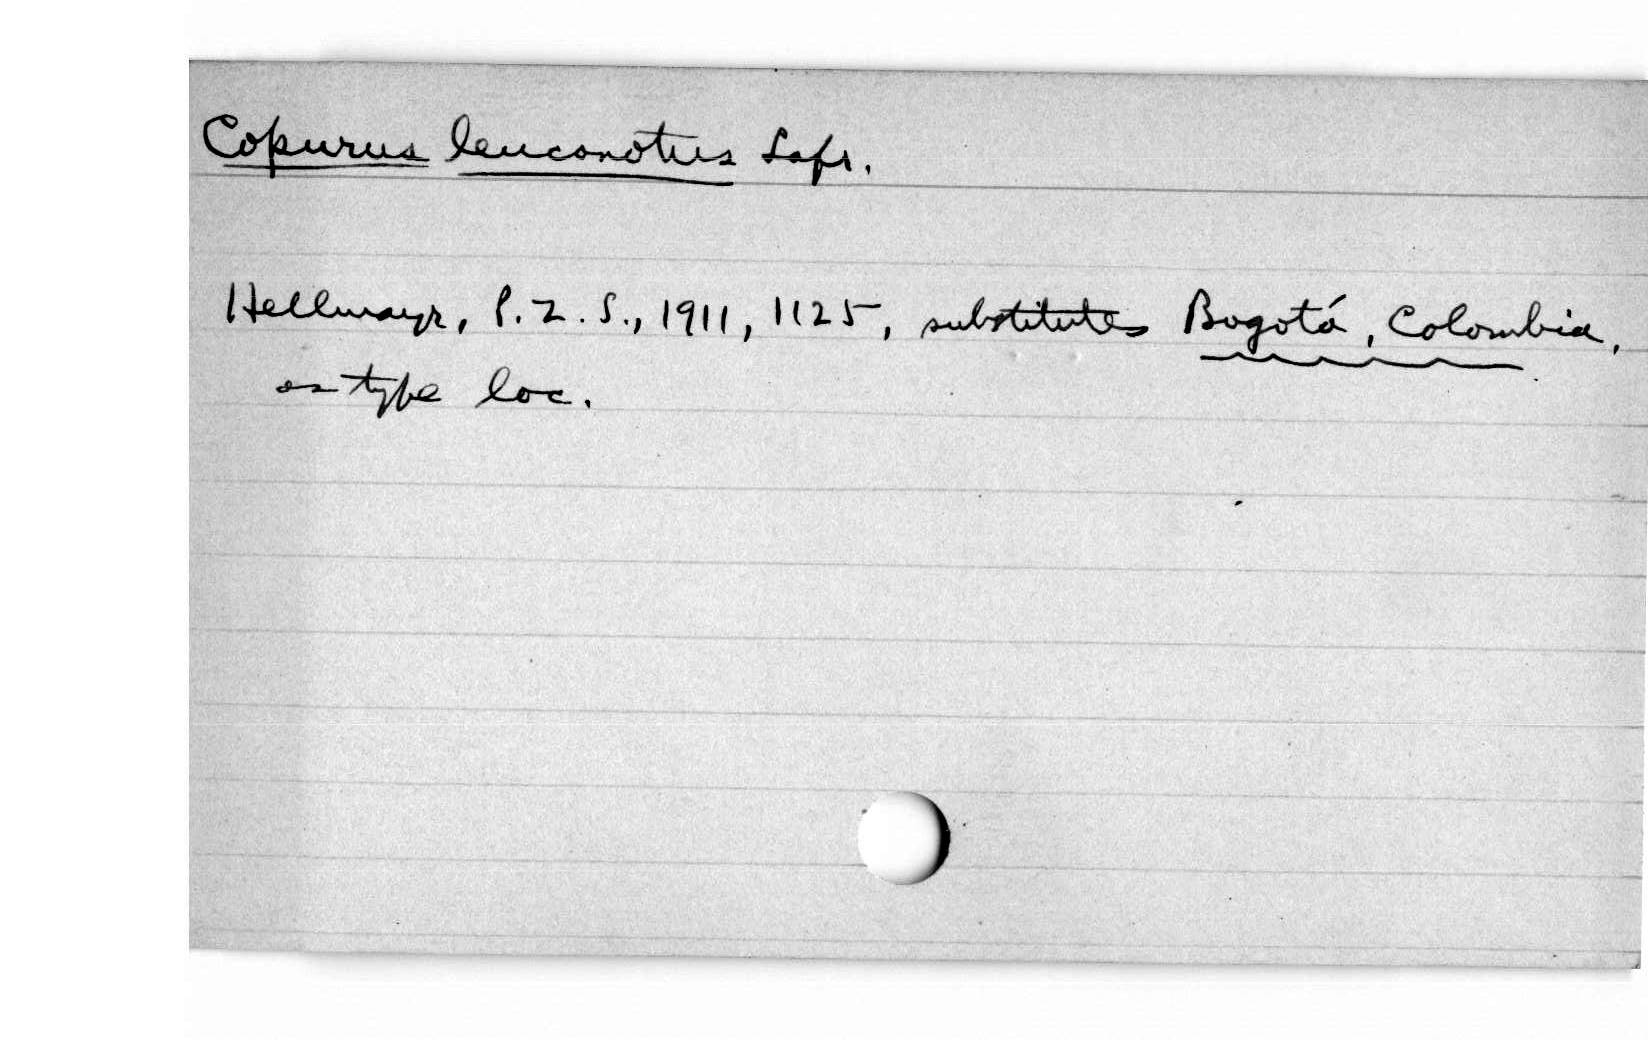 Copurus leuconotus Lafr.
Hellmayr, P. Z. S., 1911, 1125, substitutes Bogotá, Colombia,
as type loc.